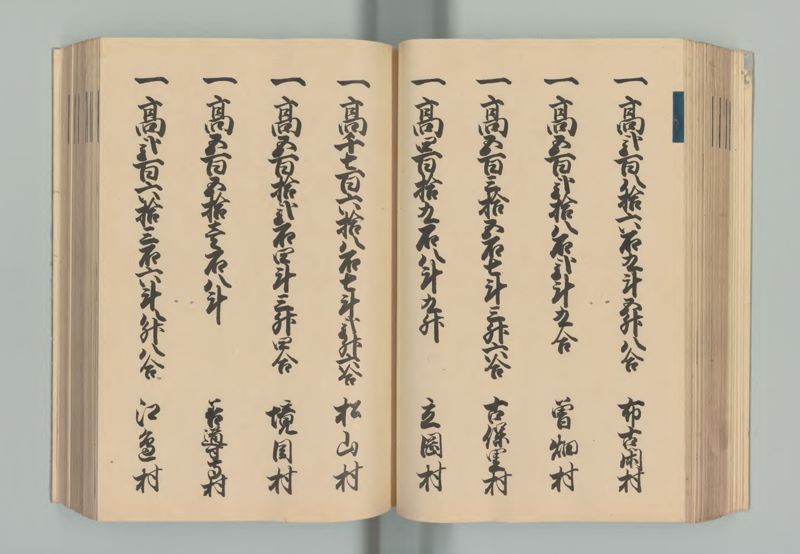 一高弐百八拾六石九斗五升八合 布古閑村
一高五百弐拾八石弐斗九合 曽畑村
一高五百三拾五石七斗三升六合 古保里村
一高四百拾九石八斗九升 立岡村
一高千七百六拾八石七斗弐升六合 松山村
一高五百拾弐石四斗三升四合 境目村
一高五百五拾壱石八斗 善導寺村
一高弐百六拾三石六斗八升八合 江邊村